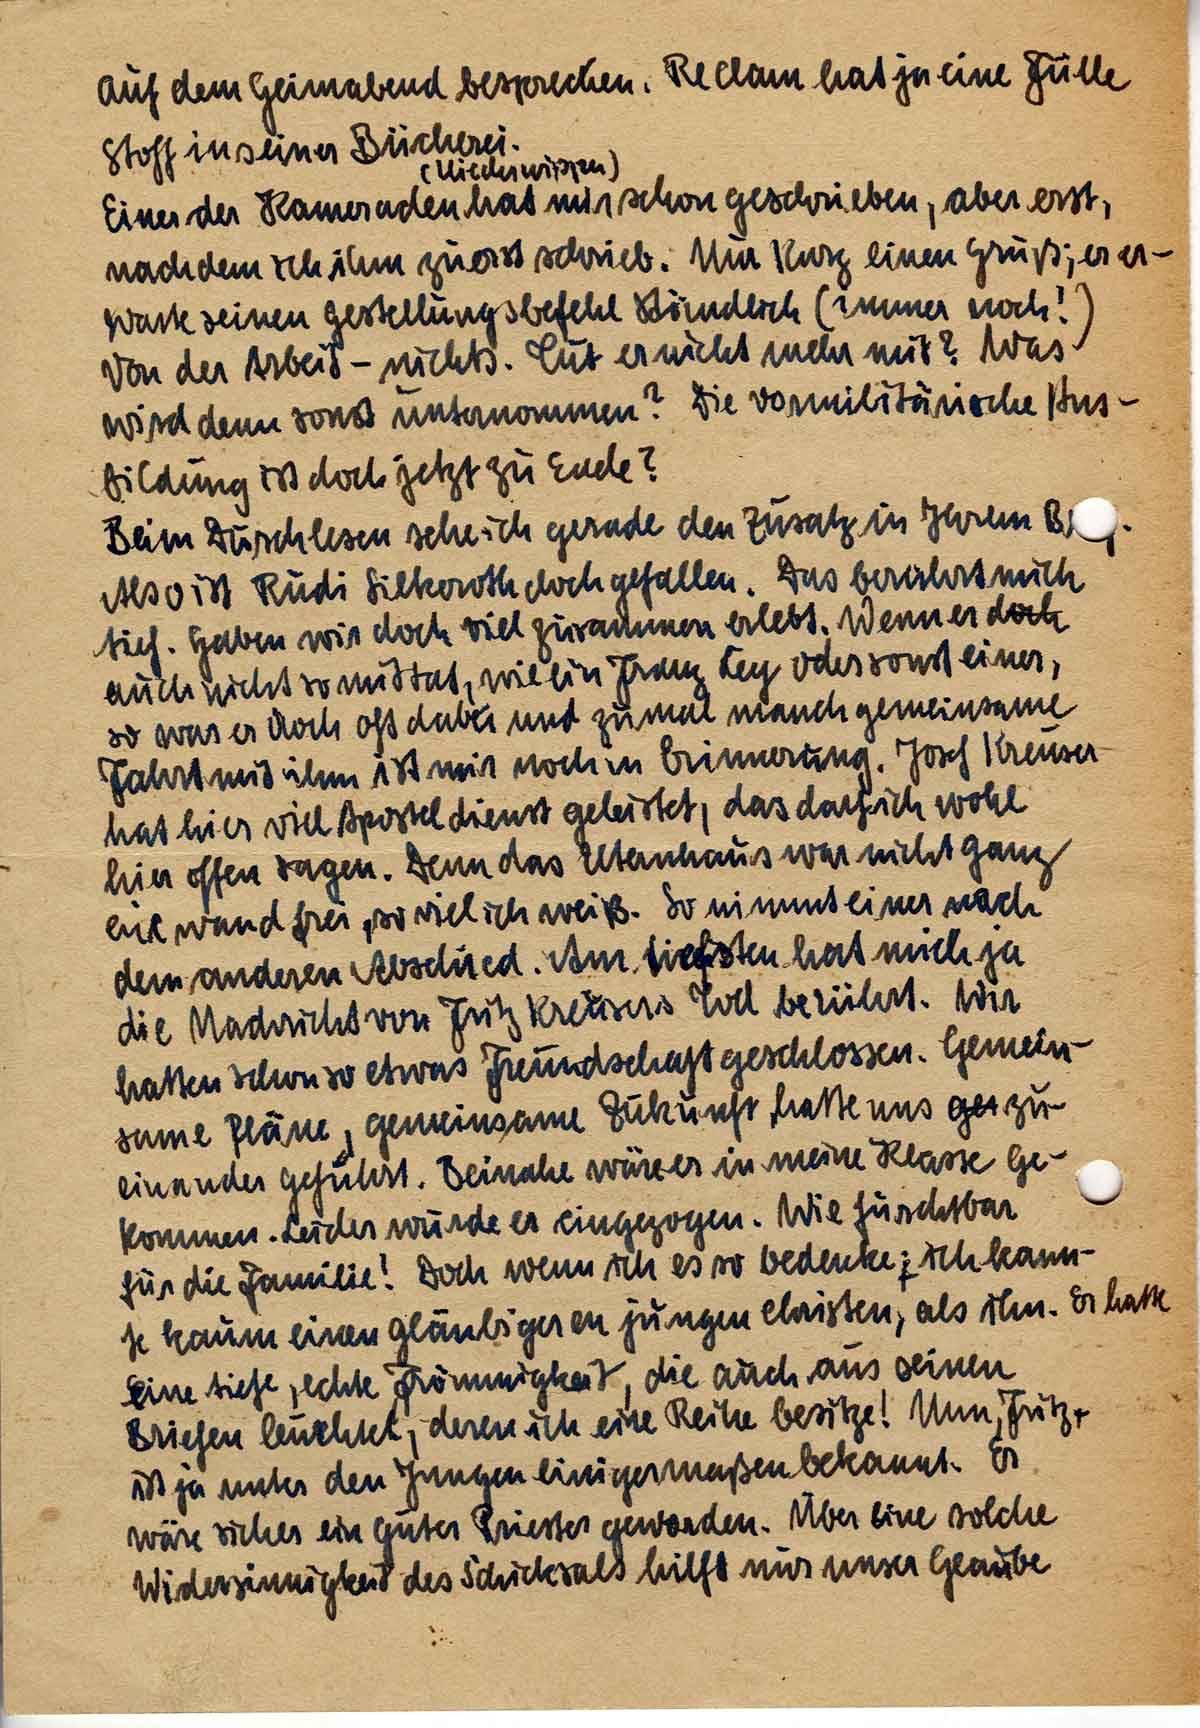 auf dem Heimabend besprechen. Reclam hat ja eine Fülle
Stoff in seiner Bücherei.
Einer der Kameraden hat mir schon geschrieben, aber erst,
nachdem ich ihm zuerst schrieb. Nur kurz einen Gruß; er er-
warte seinen Gestellungsbefehl stündlich (immer noch!)
Von der Arbeit – nichts. Tut er nicht mehr mit? Was
wird denn sonst unternommen? Die vormilitärische Aus-
bildung ist doch jetzt zu Ende?
Beim Durchlesen sehe ich gerade den Zusatz in Ihrem
Also ist Rudi doch gefallen. Das berührt mich
tief. Haben wir doch viel zusammen erlebt. Wenn er doch
auch nicht so mittat, wie ein Franz Ley oder sonst einer,
so war er doch oft dabei und zumal manch gemeinsame
Fahrt mit ihm ist mir noch in Erinnerung. Josef Kreuser
hat hier viel Aposteldienst geleistet, das darf ich wohl
hier offen sagen. Denn das Elternhaus war nicht ganz
einwandfrei, soviel ich weiß. So nimmt einer nach
dem anderen Abschied. Am tiefsten hat mich ja
die Nachricht von Fritz Kreusers Tod berührt. Wir
hatten schon so etwas Freundschaft geschlossen. Gemein-
same Pläne, gemeinsame Zukunft hatte uns zu-
einander geführt. Beinahe wäre er in meine Klasse ge-
kommen. Leider wurde er eingezogen. Wie furchtbar
für die Familie! Doch wenn ich es so bedenke; ich kann-
te kaum einen gläubigeren jungen Christen, als ihn. Er hatte
eine tiefe, echte Frömmigkeit, die auch aus seinen
Briefen leuchtet, deren ich eine Reihe besitze! Nun, Fritz
ist ja unter den Jungen einigermaßen bekannt. Er
wäre sicher ein guter Priester geworden. Über eine solche
Widersinnigkeit des Schicksals hilft nur unser Glaube